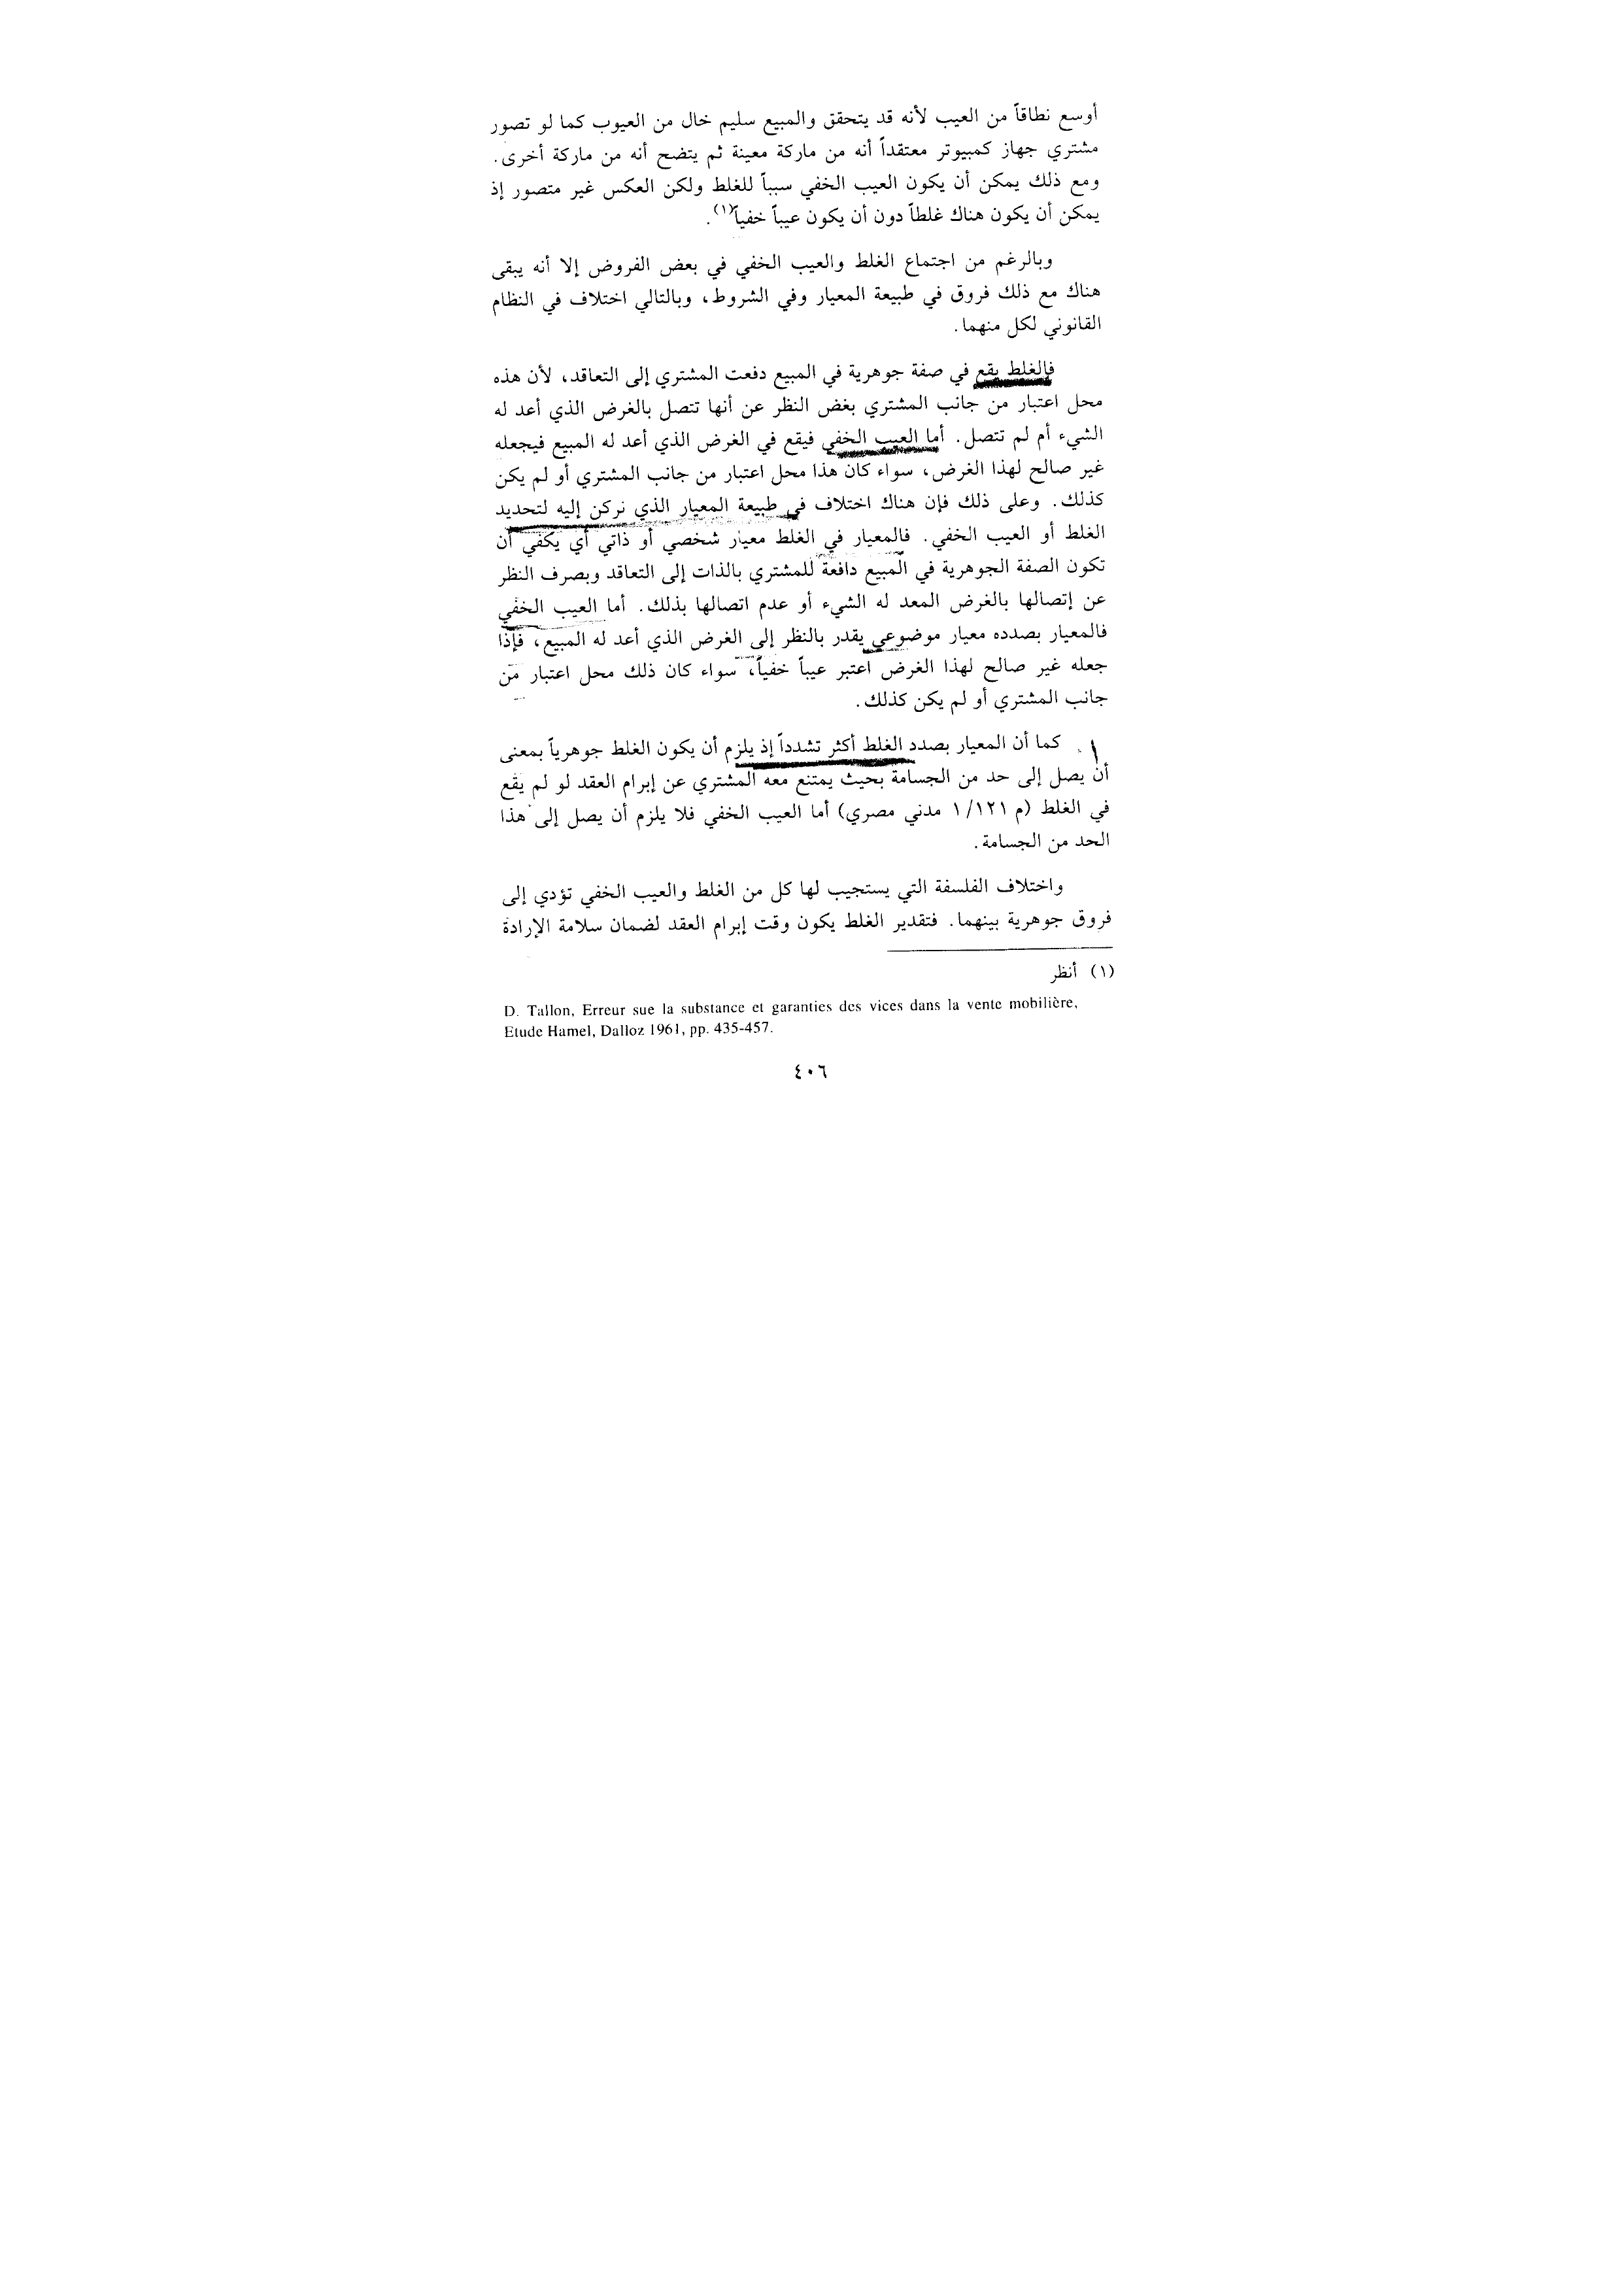 أوسع نطاقاً من العيب لأنه قد يتحقق والمبيع سليم خال من العيوب كما لو تصور
مشتري جهاز كمبيوتر معتقداً أنه من ماركة معينة ثم يتضح أنه من ماركة أخرى.
ومع ذلك يمكن أن يكون العيب الخفي سبباً للغلط ولكن العكس غير متصور إذ
يمكن أن يكون هناك غلطاً دون أن يكون عيباً خفياً(١).
وبالرغم من اجتماع الغلط والعيب الخفي في بعض الفروض إلا أنه يبقى
هناك مع ذلك فروق في طبيعة المعيار وفي الشروط، وبالتالي اختلاف في النظام
القانوني لكل منهما.
فالغلط يقع في صفة جوهرية في المبيع دفعت المشتري إلى التعاقد، لأن هذه
محل اعتبار من جانب المشتري بغض النظر عن أنها تتصل بالغرض الذي أعد له
الشيء أم لم تتصل. أما العيب الخفي فيقع في الغرض الذي أعد له المبيع فيجعله
غير صالح لهذا الغرض، سواء كان هذا محل اعتبار من جانب المشتري أو لم يكن
كذلك. وعلى ذلك فإن هناك اختلاف في طبيعة المعيار الذي نركن إليه لتحديد
الغلط أو العيب الخفي. فالمعيار في الغلط معيار شخصي أو ذاتي أي يكفي أن
تكون الصفة الجوهرية في المبيع دافعة للمشتري بالذات إلى التعاقد وبصرف النظر
عن إتصالها بالغرض المعد له الشيء أو عدم اتصالها بذلك. أما العيب الخفي
فالمعيار بصدده معيار موضوعي يقدر بالنظر إلى الغرض الذي أعد له المبيع، فإذا
جعله غير صالح لهذا الغرض اعتبر عيباً خفياً، سواء كان ذلك محل اعتبار من
جانب المشتري أو لم يكن كذلك.
كما أن المعيار بصدد الغلط أكثر تشدداً إذ يلزم أن يكون الغلط جوهرياً بمعنى
أن يصل إلى حد من الجسامة بحيث يمتنع معه المشتري عن إبرام العقد لو لم يقع
في الغلط (م ١/١٢١ مدني مصري) أما العيب الخفي فلا يلزم أن يصل إلى هذا
الحد من الجسامة.
واختلاف الفلسفة التي يستجيب لها كل من الغلط والعيب الخفي تؤدي إلى
فروق جوهرية بينهما. فتقدير الغلط يكون وقت إبرام العقد لضمان سلامة الإرادة
(١) أنظر
D. Tallon, Erreur sue la substance et garanties des vices dans la vente mobilière,
Etude Hamel, Dalloz 1961, pp. 435-457.
٤٠٦